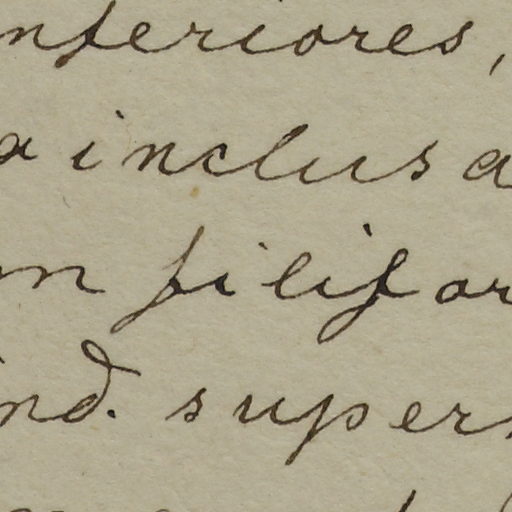 nferiores,
a inclusa
n filifor
nd. super